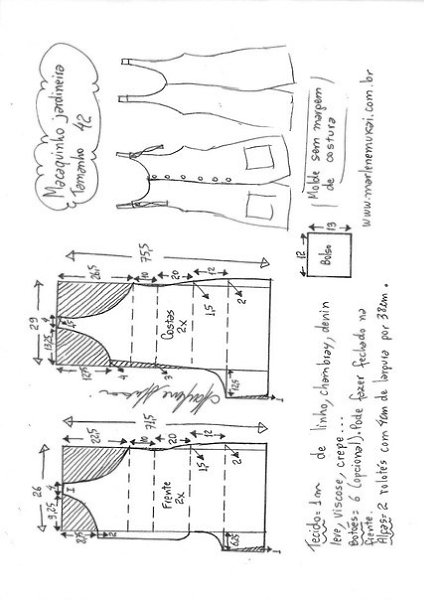 Macaquinho jardineira
Tamanho 42
(Molde sem margem
de costura)
www.marlenemukai.com.br
12
13
Bolso
75,5
26,5
10
20
12
29
4
13,25
1,5
12,5
4
3
Costas
2x
1,5
2
12,5
1
Marlene Mukai
71,5
22,5
10
20
12
26
4
9,25
1
8,5
2
Frente
2x
1,5
2
6,25
1
Tecido = 1m de linho, chambray, denin
leve, viscose, crepe...
Botões = 6 (opcional). Pode fazer fechado na
frente.
Alças = 2 rolotés com 4cm de largura por 38cm.